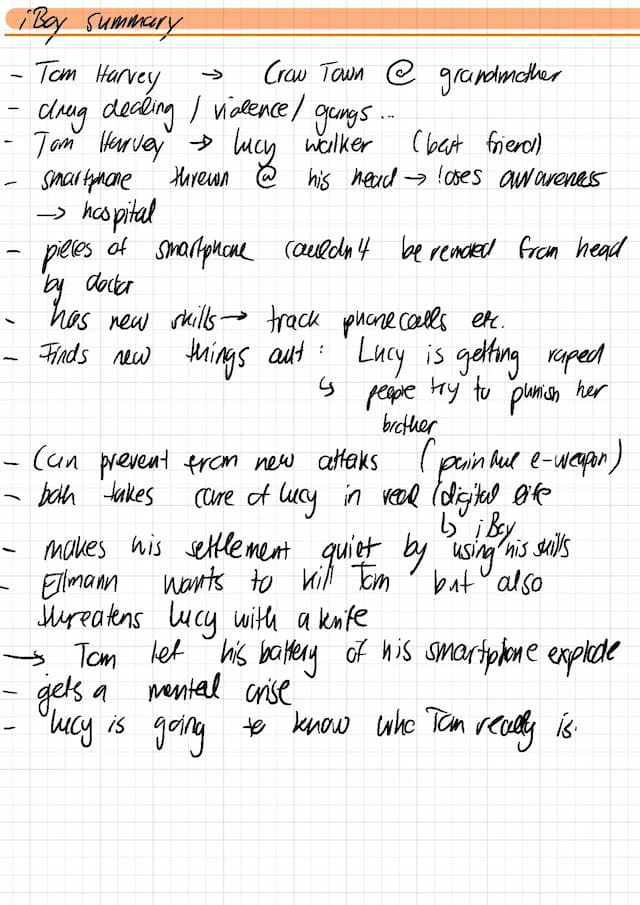 iBoy summary
- Tom Harvey → Crow Town @ grandmother
- drug dealing / violence / gangs...
- Tom Harvey → Lucy Walker (best friend)
- smartphone thrown @ his head → loses awareness
→ hospital
- pieces of smartphone couldn't be removed from head
by doctor
- has new skills → track phonecalls etc.
- Finds new things out: Lucy is getting raped
↳ people try to punish her
brother
- Can prevent from new attaks (painful e-weapon)
- both takes care of Lucy in real / digital life
↳ iBoy
- makes his settlement quiet by using his skills
- Ellmann wants to kill Tom but also
threatens Lucy with a knife
→ Tom let his battery of his smartphone explode
- gets a mental crise
- Lucy is going to know who Tom really is.